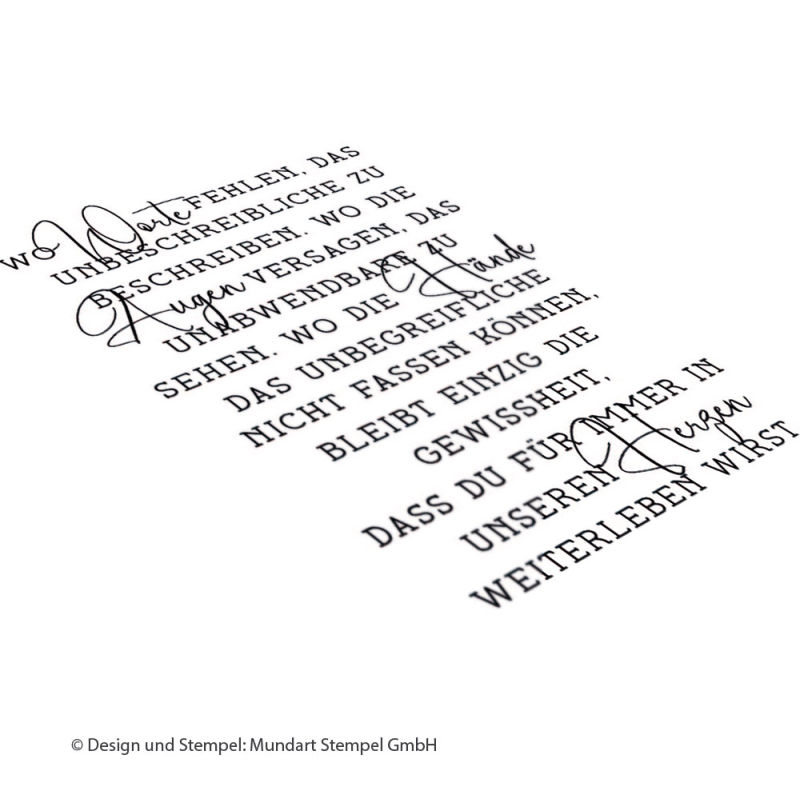 WO Worte FEHLEN, DAS
UNBESCHREIBLICHE ZU
BESCHREIBEN. WO DIE
Augen VERSAGEN, DAS
UNABWENDBARE ZU
SEHEN. WO DIE Hände
DAS UNBEGREIFLICHE
NICHT FASSEN KÖNNEN,
BLEIBT EINZIG DIE
GEWISSHEIT,
DASS DU FÜR IMMER IN
UNSEREN Herzen
WEITERLEBEN WIRST
© Design und Stempel: Mundart Stempel GmbH